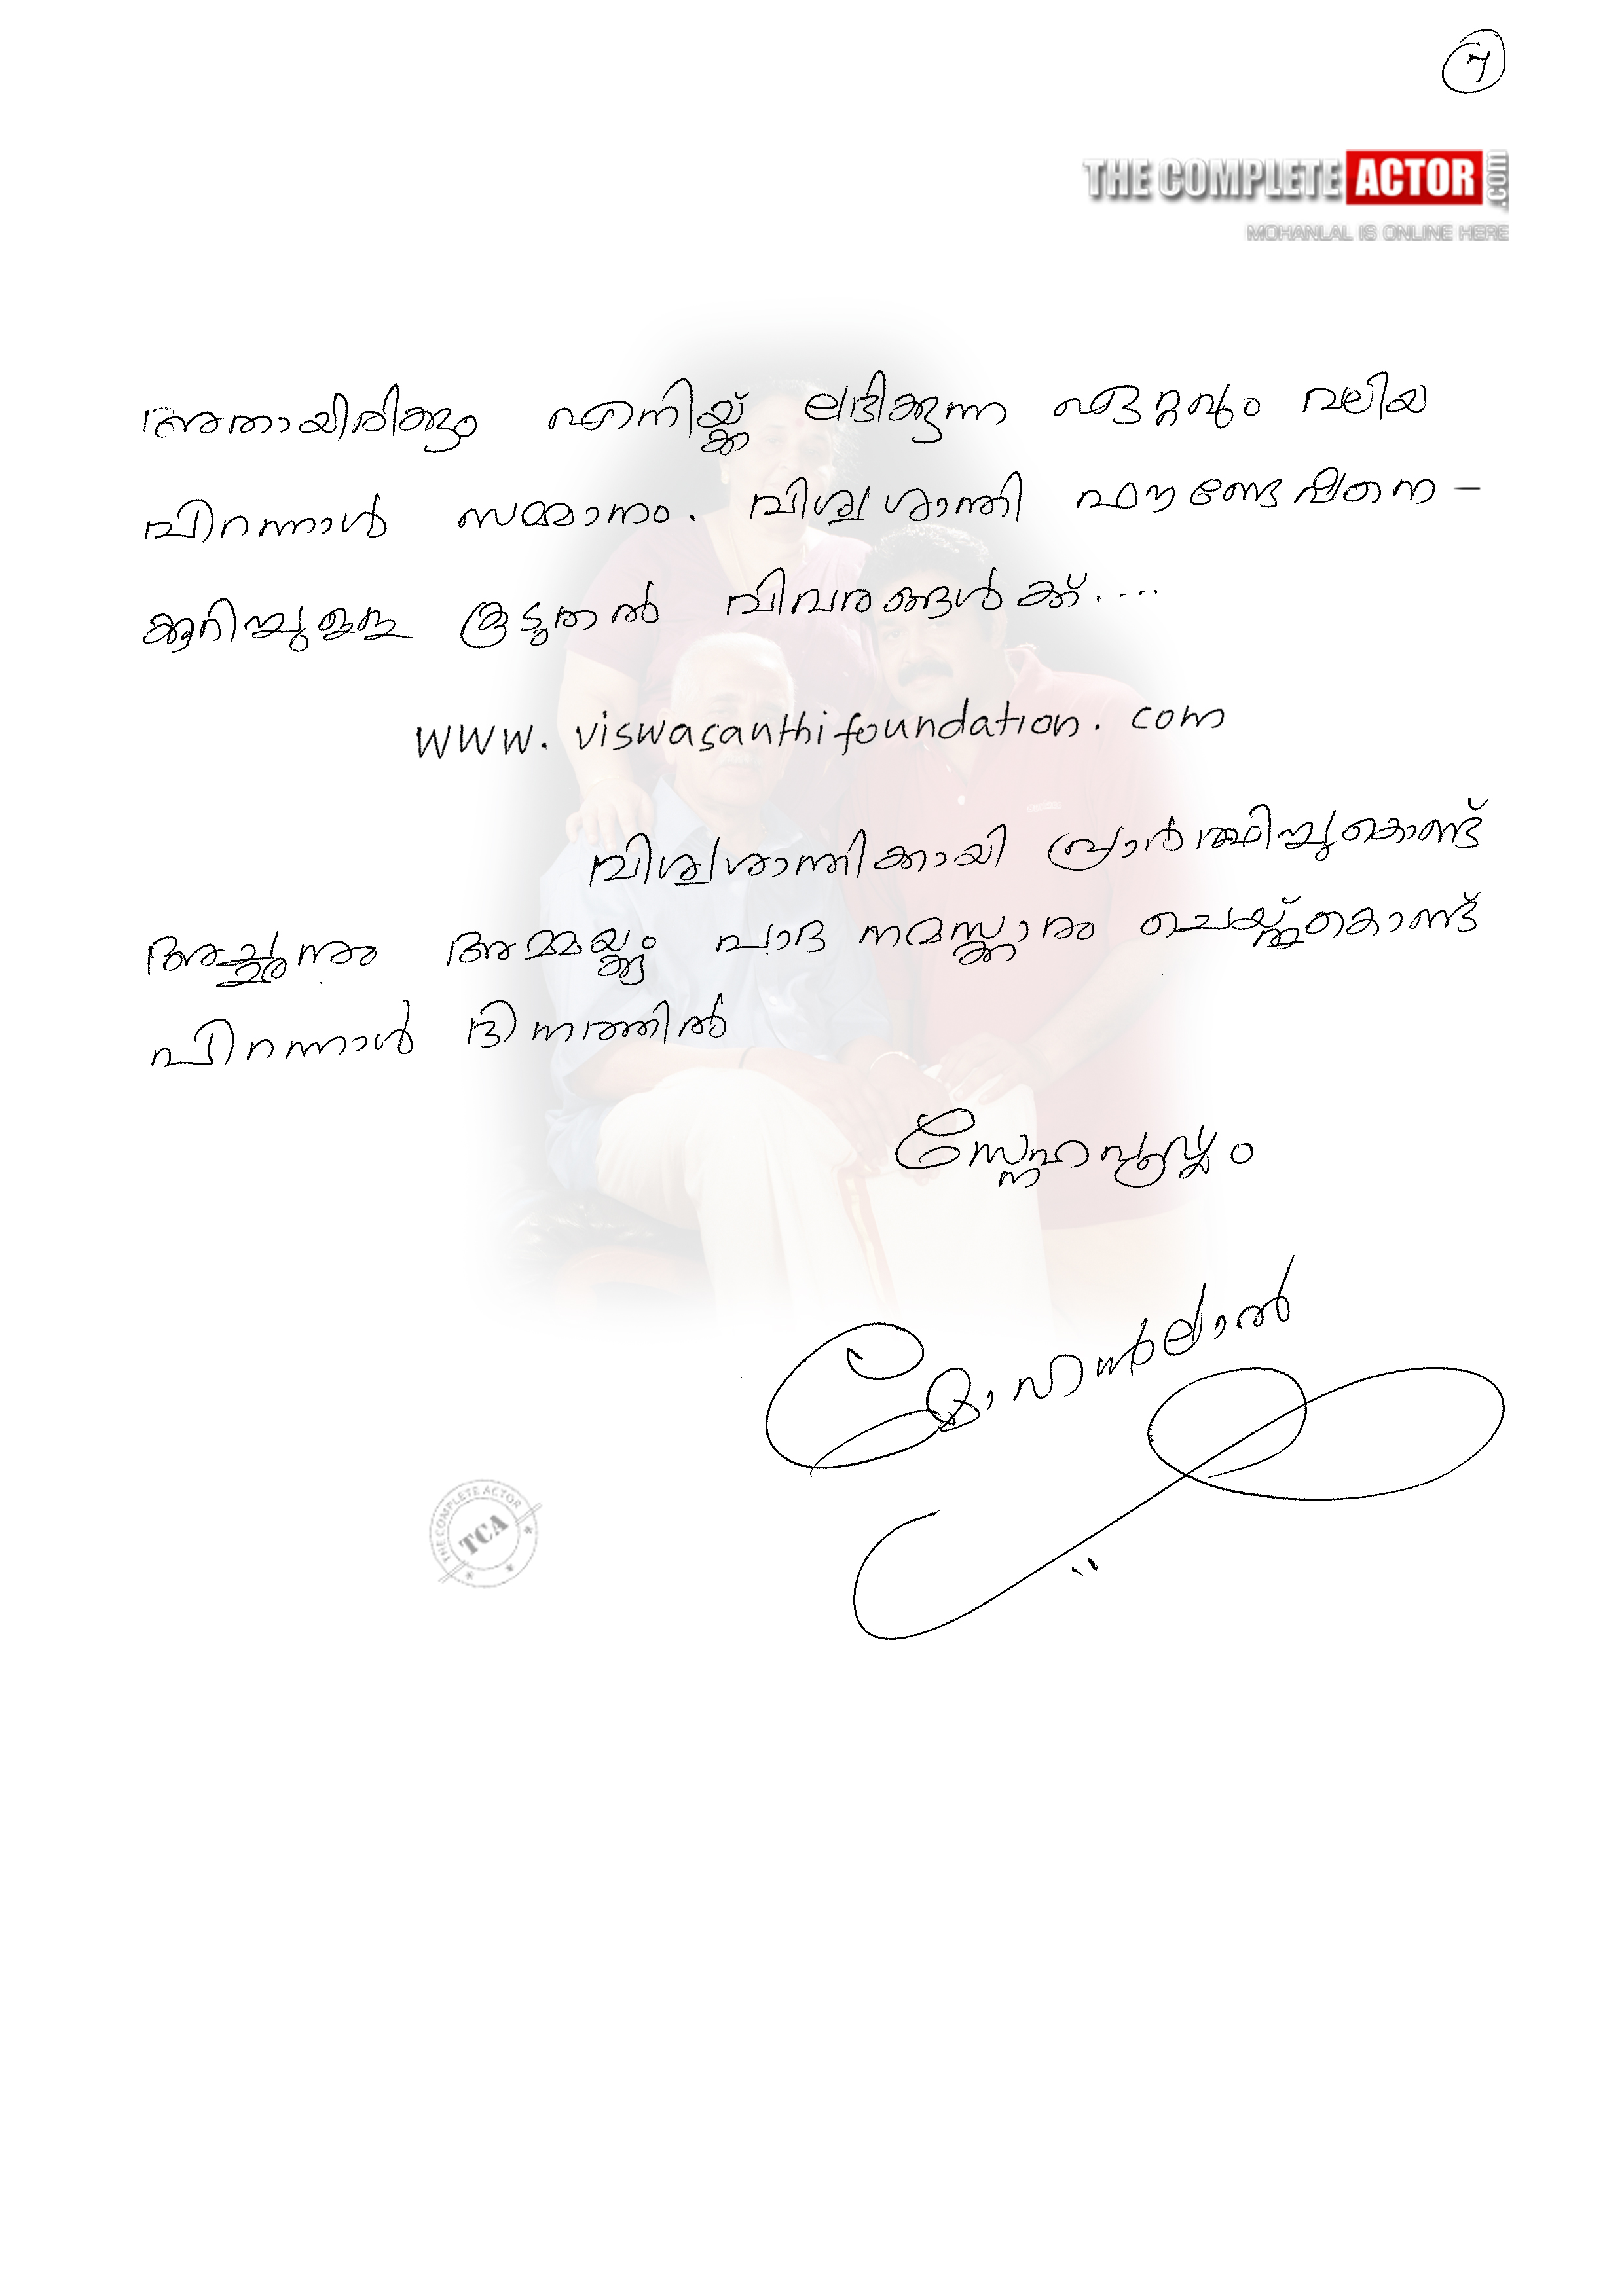 7
THE COMPLETE ACTOR .com
MOHANLAL IS ONLINE HERE
അതായിരിക്കും എനിയ്ക്ക് ലഭിക്കുന്ന ഏറ്റവും വലിയ
പിറന്നാൾ സമ്മാനം. വിശ്വശാന്തി ഫൗണ്ടേഷനെ -
ക്കുറിച്ചുള്ള കൂടുതൽ വിവരങ്ങൾക്ക്....
www.viswasanthifoundation.com
വിശ്വശാന്തിക്കായി പ്രാർത്ഥിച്ചുകൊണ്ട്
അച്ഛനും അമ്മയ്ക്കും പാദ നമസ്ക്കാരം ചെയ്തുകൊണ്ട്
പിറന്നാൾ ദിനത്തിൽ
സ്നേഹപൂർവ്വം
മോഹൻലാൽ
THE COMPLETE ACTOR
TCA